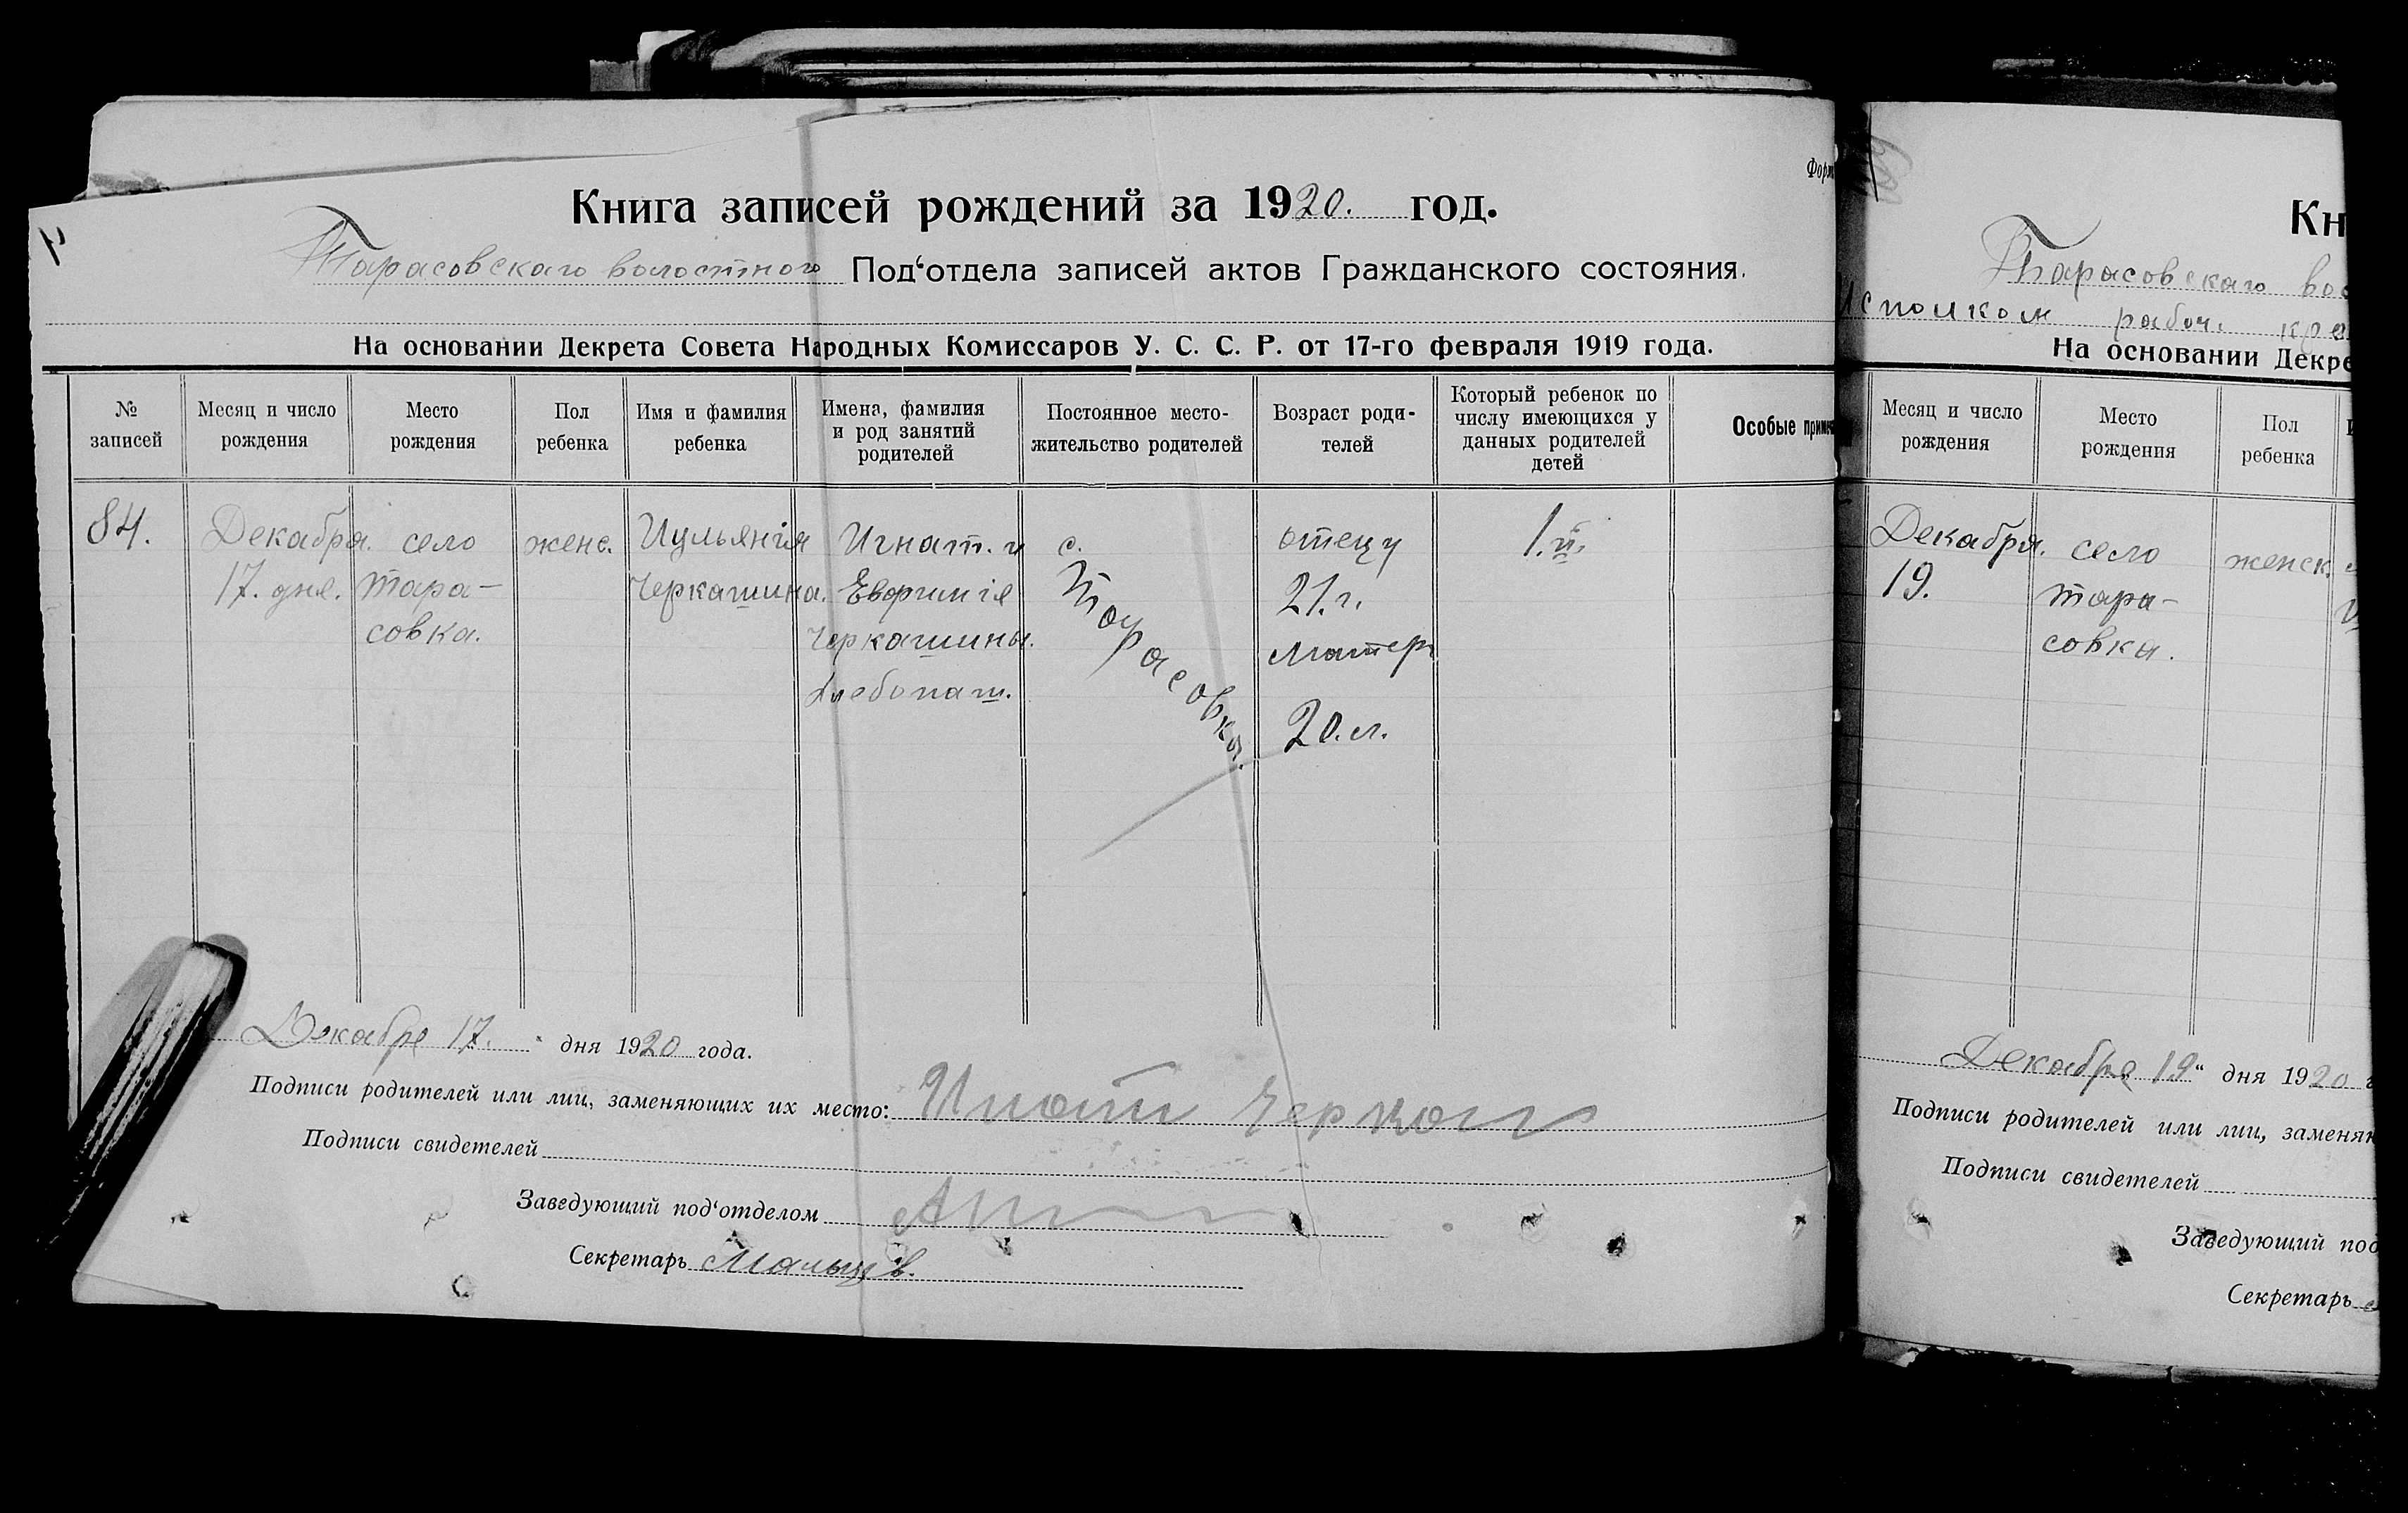 Форм
Книга записей рождений за 1920. год.
Тарасовскаго волостного Под‘отдела записей актов Гражданского состояния.
На основании Декрета Совета Народных Комиссаров У. С. С. Р. от 17-го февраля 1919 года.
№ записей
Месяц и число рождения
Место рождения
Пол ребенка
Имя и фамилия ребенка
Имена, фамилия и род занятий родителей
Постоянное место-жительство родителей
Возраст роди-телей
Который ребенок по числу имеющихся у данных родителей детей
Особые примеч
84.
Декабря.
17. дня.
село
Тара-
совка.
женс.
Иульянія
Черкашина.
Игнат. и
Евфимія
Черкашины.
Хлебопаш.
с.
Тарасовка.
отецу
21. г.
матери
20. л.
1.й.
Декабря 17. дня 1920 года.
Подписи родителей или лиц, заменяющих их место: Игнат Черкаш
Подписи свидетелей
Заведующий под‘отделом
Секретарь Мальцев.
Кн
Тарасовскаго вол
Исполком рабоч. кре
На основании Декре
Месяц и число рождения
Место рождения
Пол ребенка
Декабря.
19.
село
Тара-
совка.
женск.
Декабря 19 “ дня 1920 г
Подписи родителей или лиц, заменяю
Подписи свидетелей
Заведующий под
Секретарь